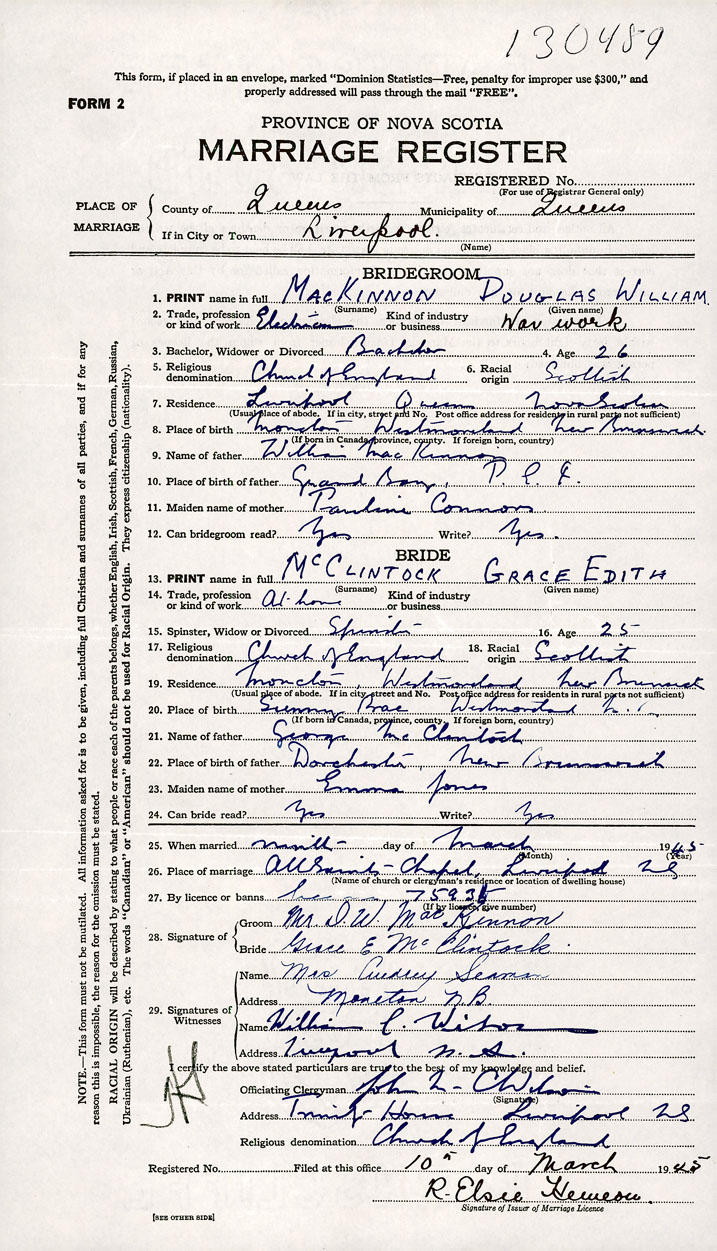 130489
This form, if placed in an envelope, marked “Dominion Statistics—Free, penalty for improper use $300,” and
properly addressed will pass through the mail “FREE”.
FORM 2
PROVINCE OF NOVA SCOTIA
MARRIAGE REGISTER
REGISTERED No.
(For use of Registrar General only)
PLACE OF MARRIAGE
County of Queens Municipality of Queens
If in City or Town Liverpool.
(Name)
BRIDEGROOM
1. PRINT name in full MACKINNON DOUGLAS WILLIAM
(Surname) (Given name)
2. Trade, profession or kind of work Electrician Kind of industry or business War work
3. Bachelor, Widower or Divorced Bachelor 4. Age 26
5. Religious denomination Church of England 6. Racial origin Scottish
7. Residence Liverpool Queens Nova Scotia
(Usual place of abode. If in city, street and No. Post office address for residents in rural parts not sufficient)
8. Place of birth Moncton Westmorland New Brunswick
(If born in Canada, province, county. If foreign born, country)
9. Name of father William MacKinnon
10. Place of birth of father Grand Bay, P.E.I.
11. Maiden name of mother Pauline Connors
12. Can bridegroom read? Yes Write? Yes.
BRIDE
13. PRINT name in full McCLINTOCK GRACE EDITH
(Surname) (Given name)
14. Trade, profession or kind of work At home Kind of industry or business
15. Spinster, Widow or Divorced Spinster 16. Age 25
17. Religious denomination Church of England 18. Racial origin Scottish
19. Residence Moncton, Westmorland New Brunswick
(Usual place of abode. If in city, street and No. Post office address for residents in rural parts not sufficient)
20. Place of birth Sunny Brae Westmorland N.B.
(If born in Canada, province, county. If foreign born, country)
21. Name of father George McClintock
22. Place of birth of father Dorchester, New Brunswick
23. Maiden name of mother Emma Jones
24. Can bride read? Yes Write? Yes
25. When married ninth day of March 1945
(Month) (Year)
26. Place of marriage All Saints Chapel, Liverpool NS
(Name of church or clergyman's residence or location of dwelling house)
27. By licence or banns licence
(If by licence, give number)
28. Signature of
Groom Mr. D. W. MacKinnon
Bride Grace E McClintock.
29. Signatures of Witnesses
Name Mrs Audrey Seaman
Address Moncton N.B.
Name William C. Wilson
Address Liverpool N.S.
I certify the above stated particulars are true to the best of my knowledge and belief.
Officiating Clergyman John
(Signature)
Address Trinity House Liverpool NS
Religious denomination Church of England
Registered No. Filed at this office 10th day of March 1945
R. Elsie
Signature of Issuer of Marriage Licence
[SEE OTHER SIDE]
NOTE.—This form must not be mutilated. All information asked for is to be given, including full Christian and surnames of all parties, and if for any
reason this is impossible, the reason for the omission must be stated.
RACIAL ORIGIN will be described by stating to what people or race each of the parents belongs, whether English, Irish, Scottish, French, German, Russian,
Ukrainian (Ruthenian), etc. The words “Canadian” or “American” should not be used for Racial Origin. They express citizenship (nationality).